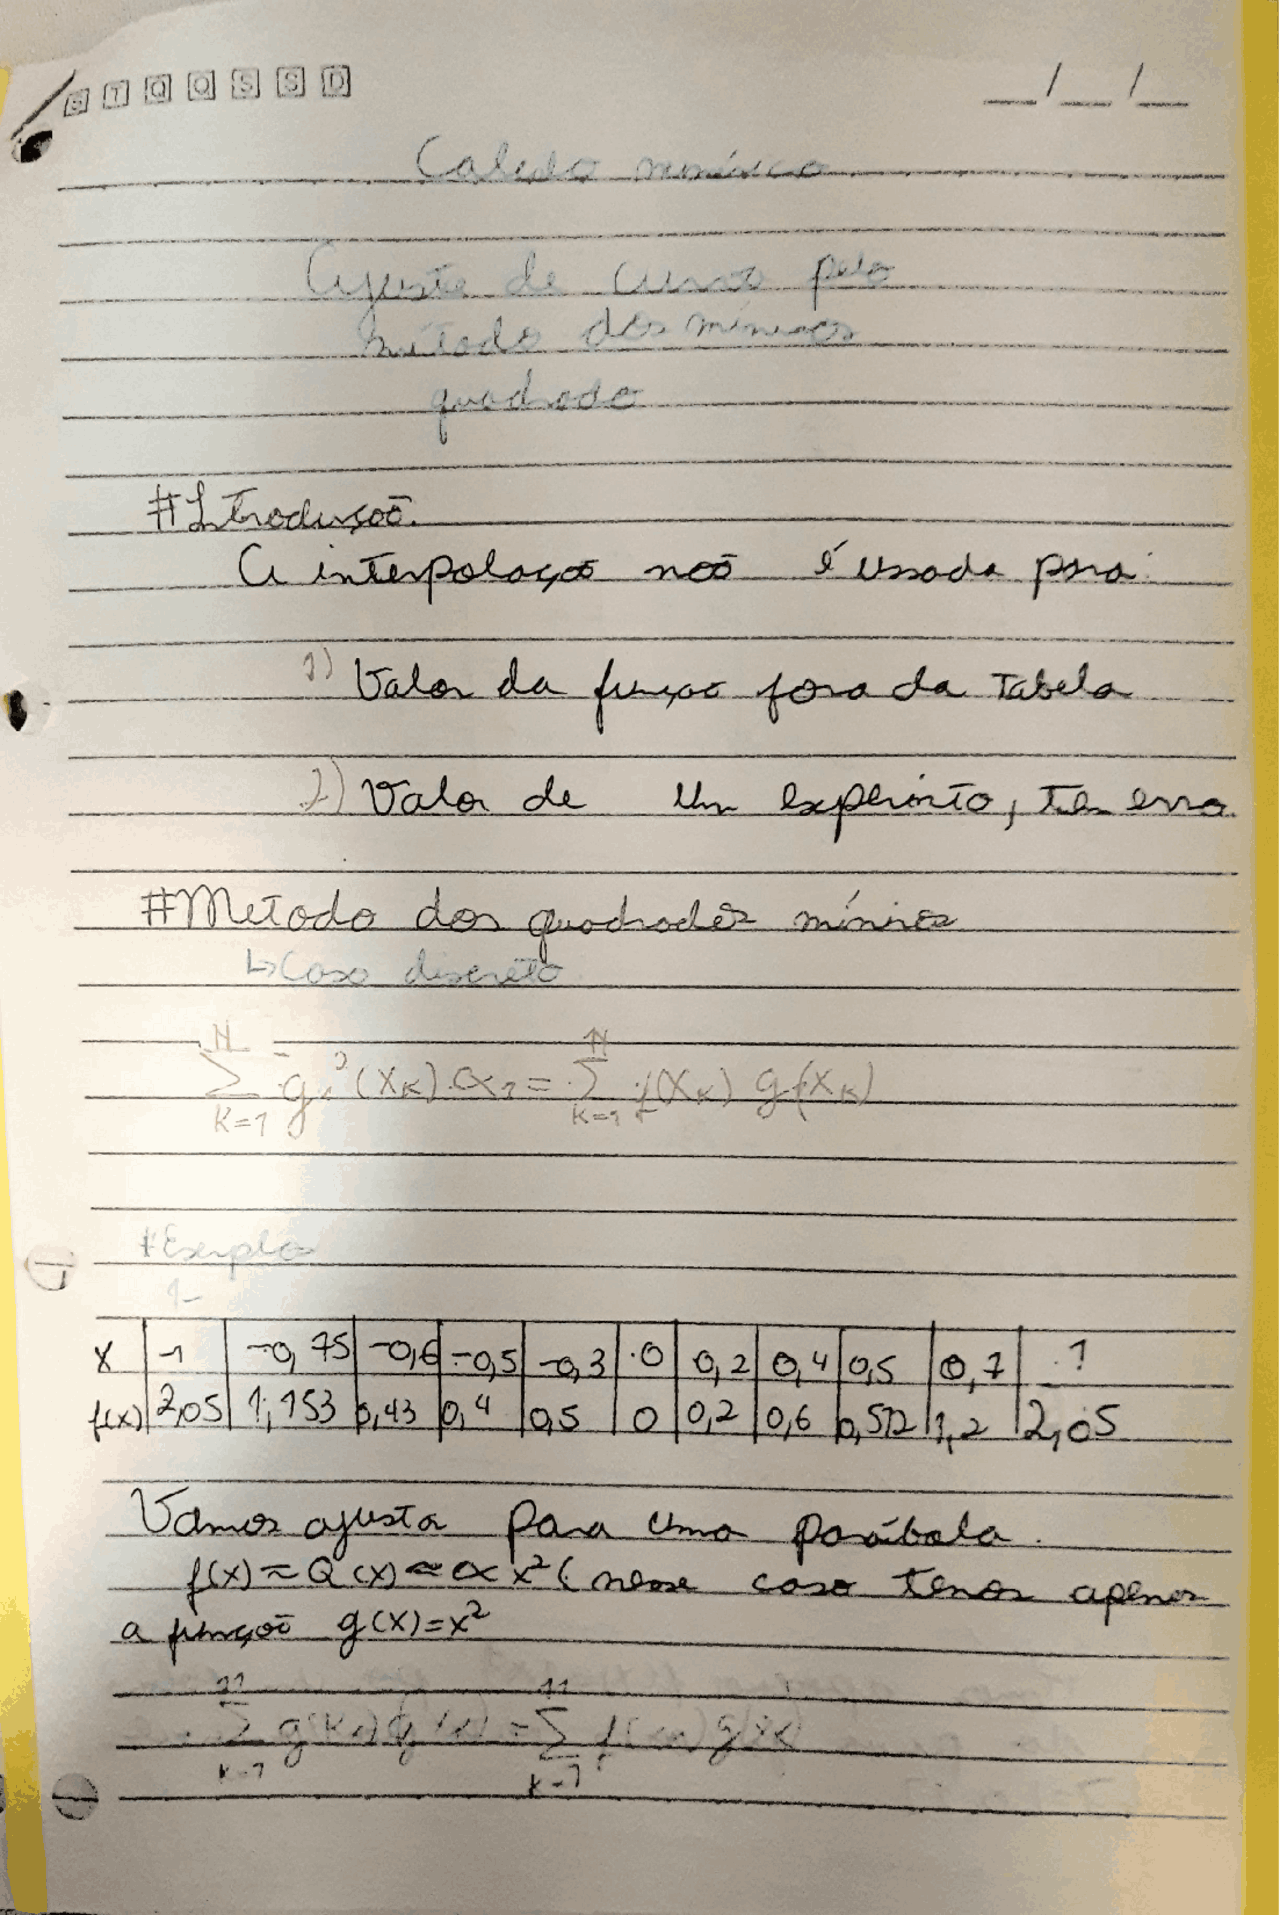 S T Q Q S S D
__/__/__
Calculo numérico
Ajuste de curva pelo
método dos mínimos
quadrado
#Introdução.
A interpolação não é ussada para:
1) Valor da função fora da Tabela
2) Valor de um experimto, tem erro.
#Metodo dos quadrados mínimos
↳Caso discreto
N N
∑ g₁²(xₖ).α₁ = ∑ f(xₖ) g(xₖ)
K=1 K=1
#Exemplos
1-
x | -1 | -0,75 | -0,6 | -0,5 | -0,3 | 0 | 0,2 | 0,4 | 0,5 | 0,7 | 1
f(x) | 2,05 | 1,153 | 0,43 | 0,4 | 0,5 | 0 | 0,2 | 0,6 | 0,512 | 1,2 | 2,05
Vamos ajusta para uma parábola.
f(x) ≈ Q(x) ≈ α x² ( nesse caso temos apenas
a função g(x)=x²
11 11
∑ = ∑
k=1 k=1